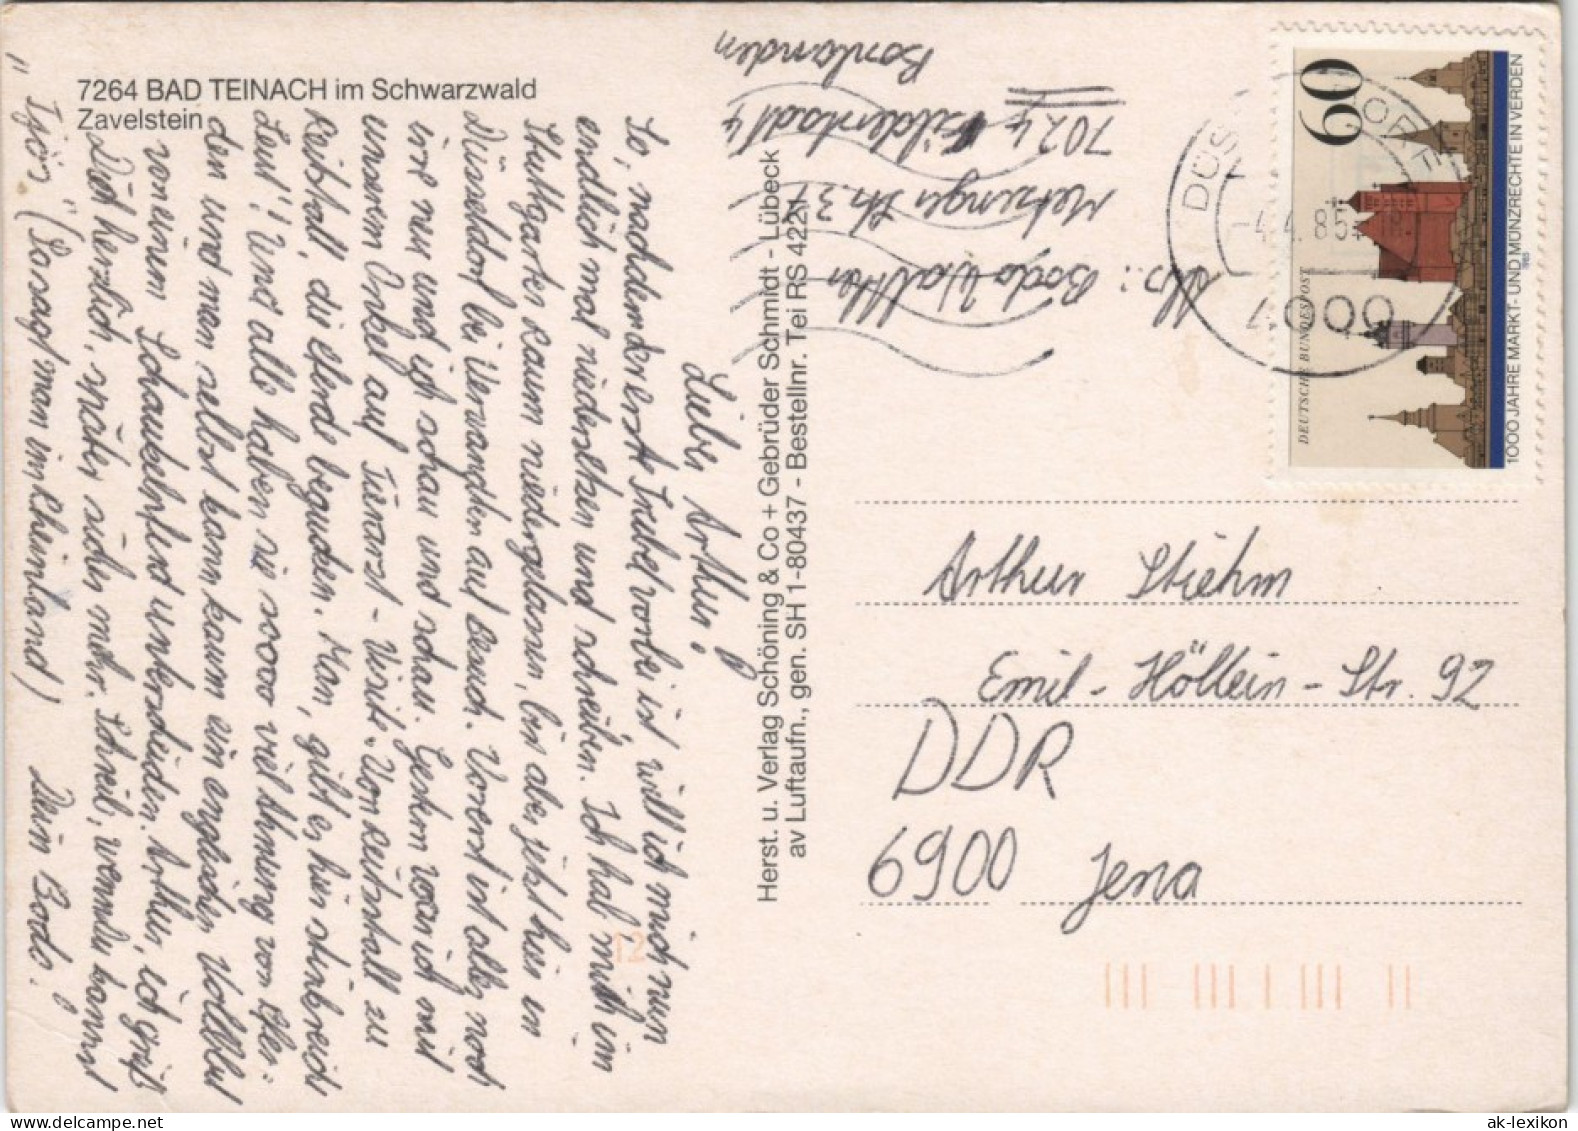 7264 BAD TEINACH im Schwarzwald
Zavelstein
Lieber Arthur!
So, nachdem der erste Trubel vorbei ist, will ich mich nun
endlich mal niedersetzen und schreiben. Ich hab mich im
Stuttgarter Raum niedergelassen, bin aber jetzt hier in
Düsseldorf bei Verwandten auf Besuch. Vorerst ist alles noch
irre nur und ich schau und schau. Gestern war ich mit
unserem Onkel auf Tierarzt-Visite. Von Reitstall zu
Reitstall, die Pferde begucken. Man, gibt es hier steinreiche
Leut'! Und alle haben sie soooo viel Ahnung von Pfer=
den und man selbst kann kaum ein englisches Vollblut
von einem Schaukelpferd unterscheiden. Arthur, ich grüß
Dich herzlich, später sicher mehr. Schreib, wenn du kannst
"Tjös" (so sagt man im Rheinland) Dein Bodo!
Herst. u. Verlag Schöning & Co + Gebrüder Schmidt - Lübeck
av Luftaufn., gen. SH 1-80437 - Bestellnr. Tei RS 4221
Abs.: Bodo Walther
Metzinger Str. 31
7024 Filderstadt 4
Bonlanden
60
DEUTSCHE BUNDESPOST
1000 JAHRE MARKT- UND MÜNZRECHTE IN VERDEN
1985
-4.4.85
4000
Arthur Stiehm
Emil-Höllein-Str. 92
DDR
6900 Jena
12
ak-lexikon